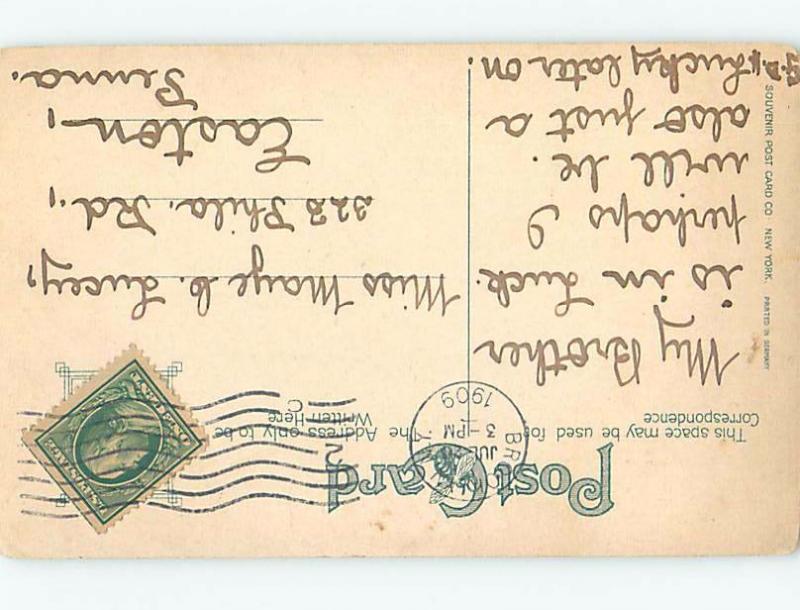 Post Card
This space may be used for
Correspondence
The Address only to be
Written Here
JUL
3 - PM
1909
My Brother
is in luck.
perhaps I
will be.
also just a
lucky later on.
Miss Maye C. Lucey,
223 Phila. Rd.,
Easton,
Penna.
SOUVENIR POST CARD CO. NEW YORK.
PRINTED IN GERMANY